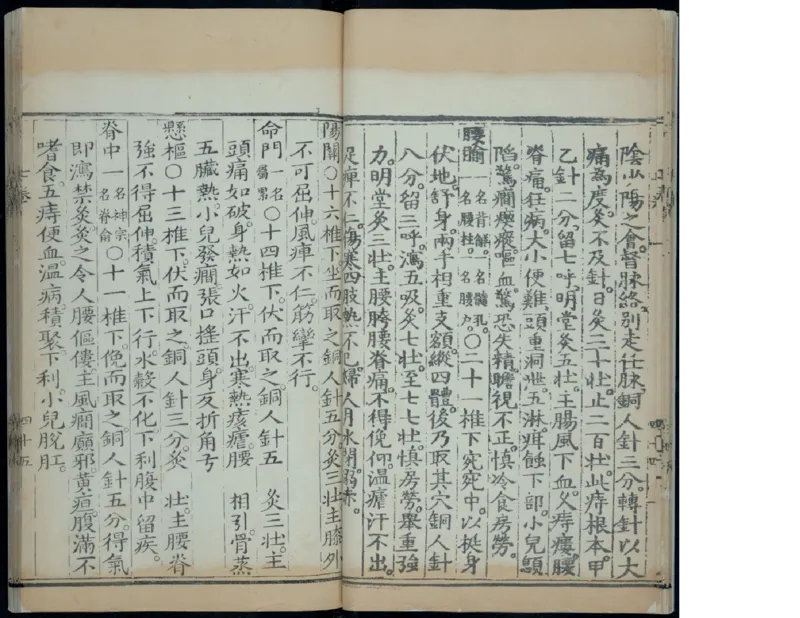 陰少陽之會督脉絡別走任脉銅人針三分轉針以大
痛為度灸不及針日灸三十壯止二百壯此痔根本甲
乙針二分留七呼明堂灸五壯主腸風下血久痔瘻腰
脊痛狂病大小便難頭重洞泄五淋疳蝕下部小兒顖
陷驚癇瘈瘲嘔血驚恐失精瞻視不正慎冷食房勞
腰腧一名背解一名髓孔一名腰柱一名腰户○二十一椎下宛宛中以挺身
伏地舒身兩手相重支額縱四體後乃取其穴銅人針
八分留三呼瀉五吸灸七壯至七七壯慎房勞舉重強
力明堂灸三壯主腰胯腰脊痛不得俛仰温瘧汗不出
足痺不仁傷寒四肢熱不已婦人月水閉溺赤
陽關○十六椎下坐而取之銅人針五分灸三壯主膝外
不可屈伸風痺不仁筋攣不行
命門一名屬累○十四椎下伏而取之銅人針五 灸三壯主
頭痛如破身熱如火汗不出寒熱痎瘧腰 相引骨蒸
五臟熱小兒發癇張口搖頭身反折角弓
懸樞○十三椎下伏而取之銅人針三分灸 壯主腰脊
強不得屈伸積氣上下行水穀不化下利腹中留疾
脊中一名神宗一名脊俞○十一椎下俛而取之銅人針五分得氣
即瀉禁灸灸之令人腰傴僂主風癇癲邪黃疸腹滿不
嗜食五痔便血温病積聚下利小兒脫肛
七卷
四十五